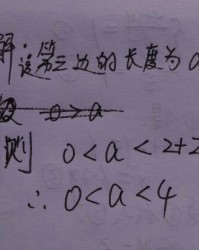 解：设第三边的长度为a
则 0<a<2+2
∴ 0<a<4